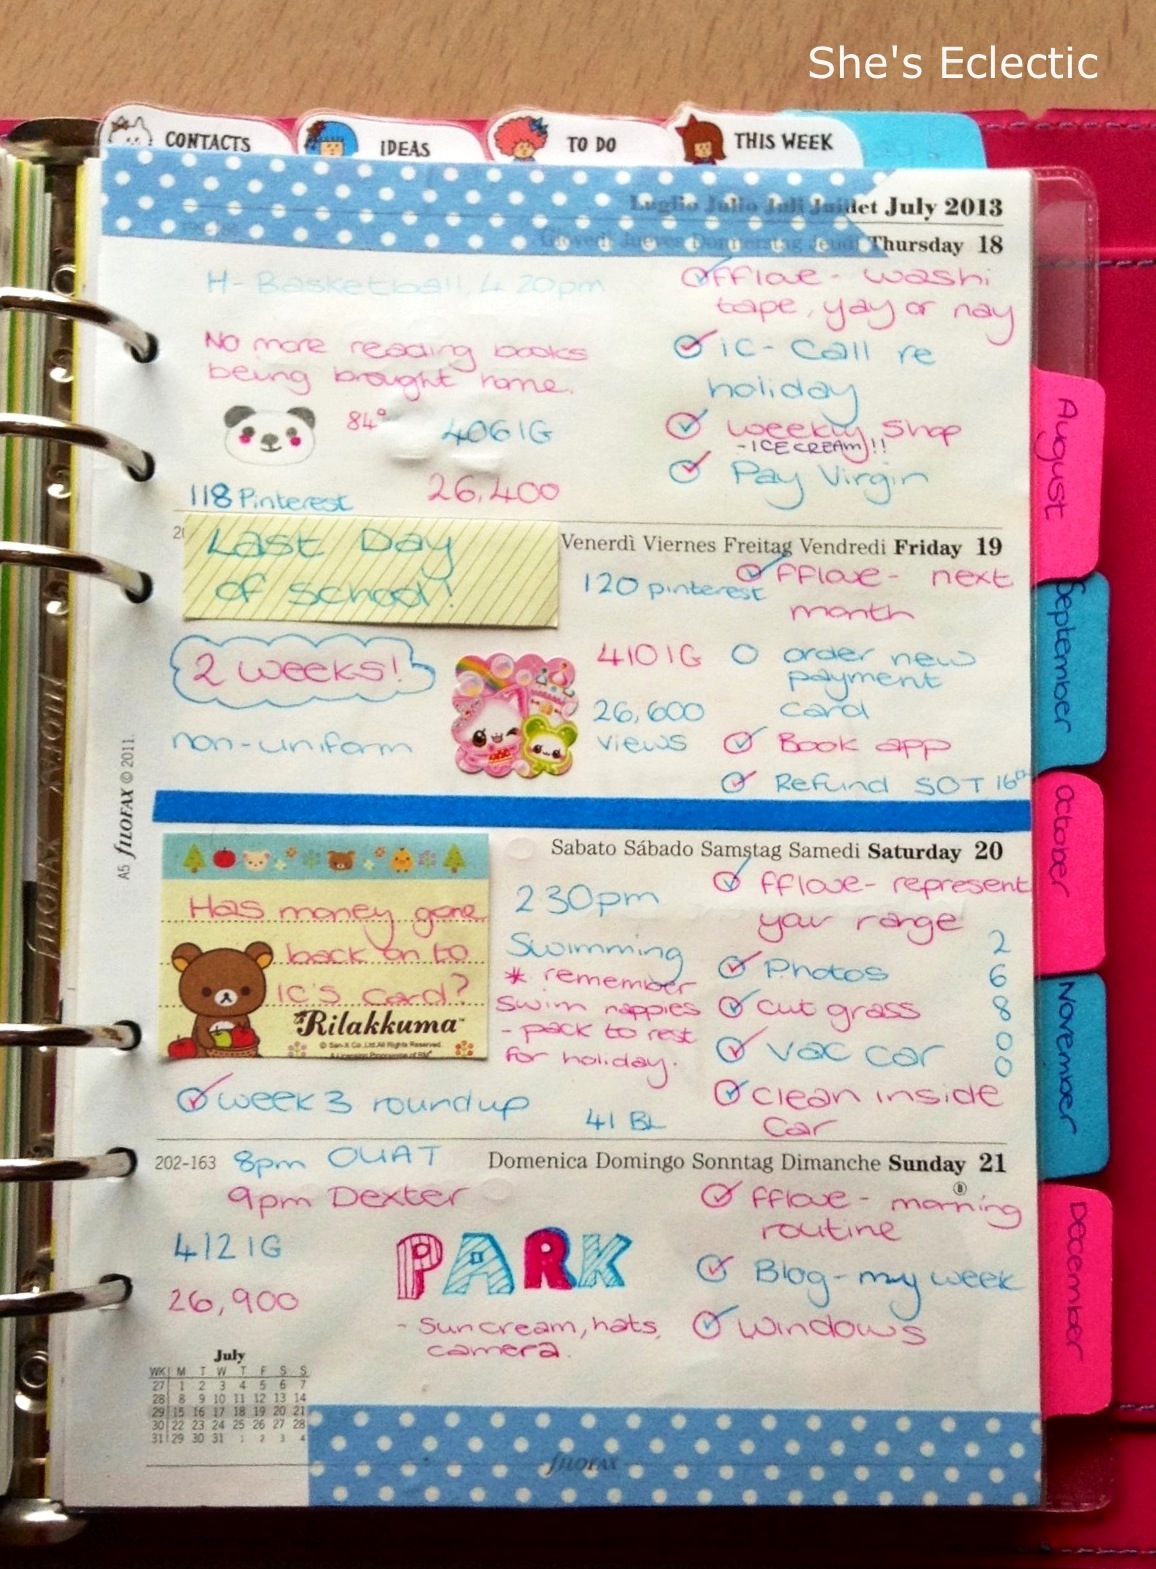 She's Eclectic
CONTACTS
IDEAS
TO DO
THIS WEEK
Luglio Julio Juli Juillet July 2013
Giovedì Jueves Donnerstag Jeudi Thursday 18
H- Basketball, 4 20pm
No more reading books
being brought home.
84°
406 IG
118 Pinterest
26,400
fflove - washi
tape, yay or nay
IC - Call re
holiday
weekly shop
- ICECREAM!!
Pay Virgin
Venerdì Viernes Freitag Vendredi Friday 19
Last Day
of school!
2 weeks!
non-uniform
120 pinterest
410 IG
26,600
views
fflove - next
month
order new
payment
card
Book app
Refund SOT 16th
Sabato Sábado Samstag Samedi Saturday 20
Has money gone
back on to
IC's card?
Rilakkuma™
© San-X Co.,Ltd.All Rights Reserved.
week 3 roundup
2 30pm
Swimming
* remember
swim nappies
- pack to rest
for holiday.
41 BL
fflove - represent
your range
Photos
cut grass
vac car
clean inside
car
2
6
8
0
0
202-163
Domenica Domingo Sonntag Dimanche Sunday 21
8pm OUAT
9pm Dexter
412 IG
26,900
PARK
- Suncream, hats,
camera.
fflove - morning
routine
Blog - my week
Windows
July
WK M T W T F S S
27 1 2 3 4 5 6 7
28 8 9 10 11 12 13 14
29 15 16 17 18 19 20 21
30 22 23 24 25 26 27 28
31 29 30 31 1 2 3 4
fILOFAX
A5 fILOFAX © 2011.
August
September
October
November
December